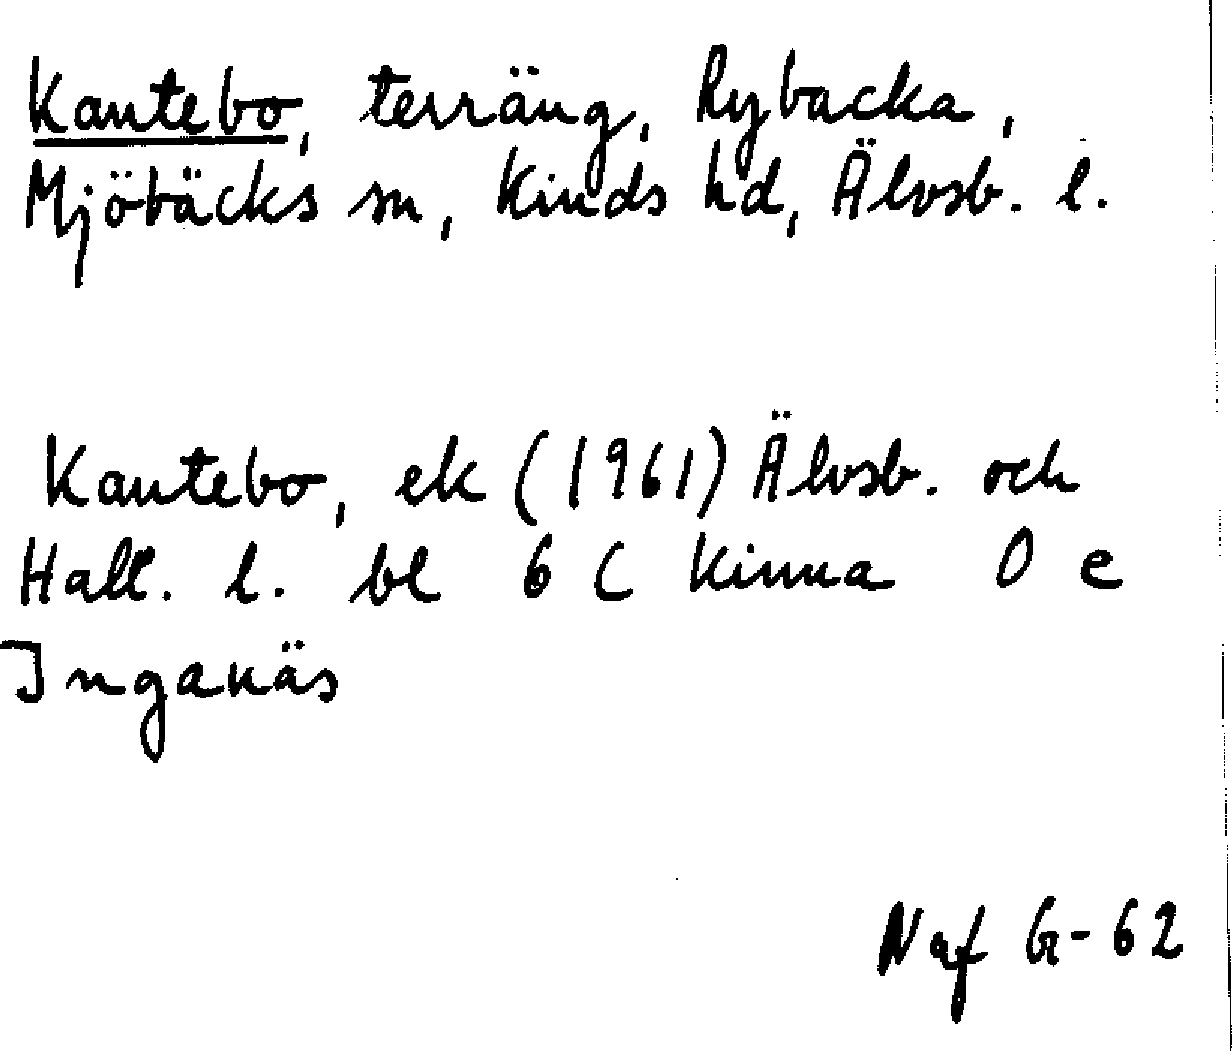 Kantebo, terräng, Rybacka,
Mjöbäcks sn, Kinds hd, Älvsb. l.
Kantebo, ek (1961) Älvsb. och
Hall. l. bl 6 C Kinna 0 e
Inganäs
Naf G-62